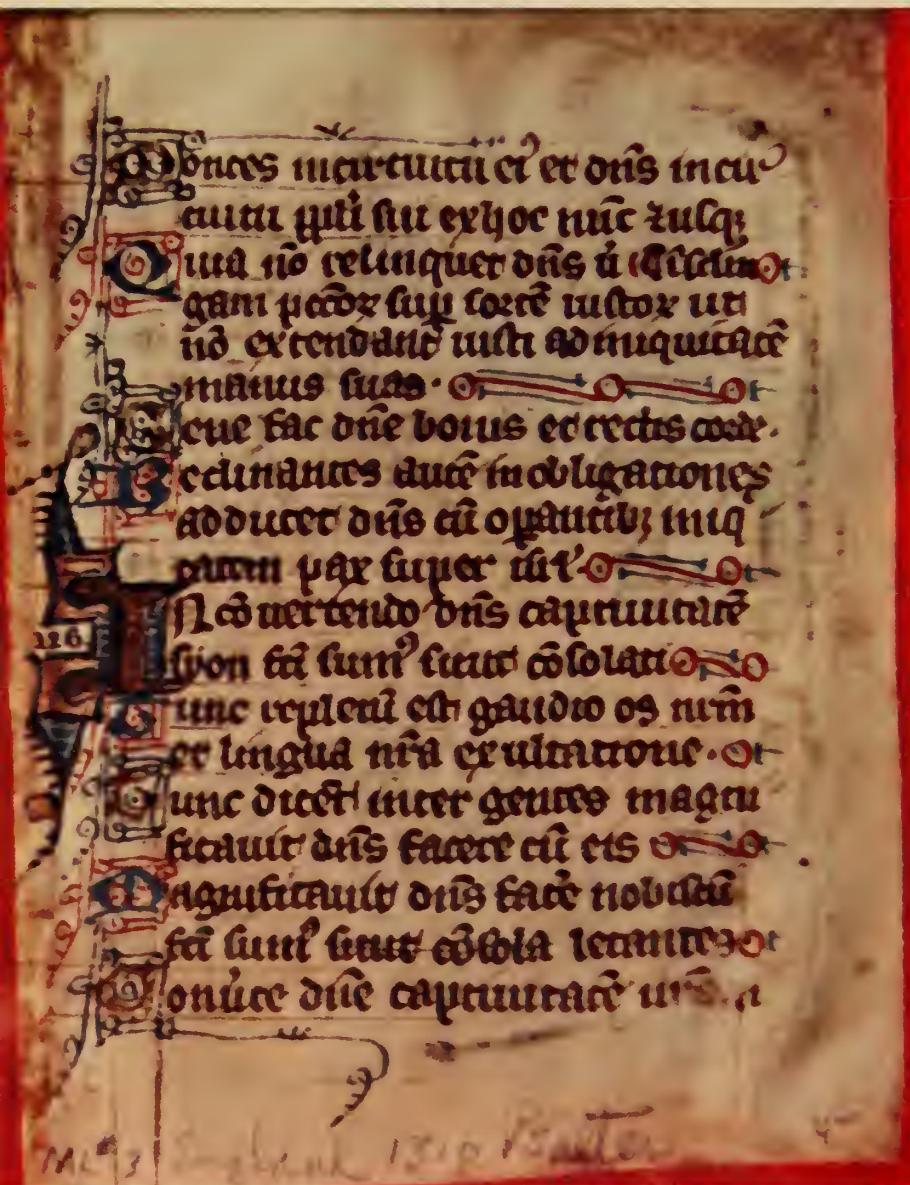 Montes incircuitu eiꝰ et dn̄s in cir
cuitu ppli sui exhoc nūc ⁊usqꝫ
Quia nō relinquet dn̄s ů
gam pccōꝝ sup sortē iustoꝝ ut
nō extendant iusti ad iniquitatē
manus suas.
Bene fac dn̄e bonis et rectis corde.
Declinantes autē in obligationes
adducet dn̄s cū opantibꝫ iniq
tatem pax super isrl̓.
IN cōuertendo dn̄s captiuitatē
syon fcī sumꝰ sicut cōsolati
Tunc repletū est gaudio os nrm̄
et lingua nr̄a exultatione.
Tunc dicēt inter gentes magni
ficauit dn̄s facere cū eis
Magnificauit dn̄s facẽ nobiscū
fcī sumꝰ sicut cōsola letantes
Conůte dn̄e captiuitatē
116.
England 1310 Psalter